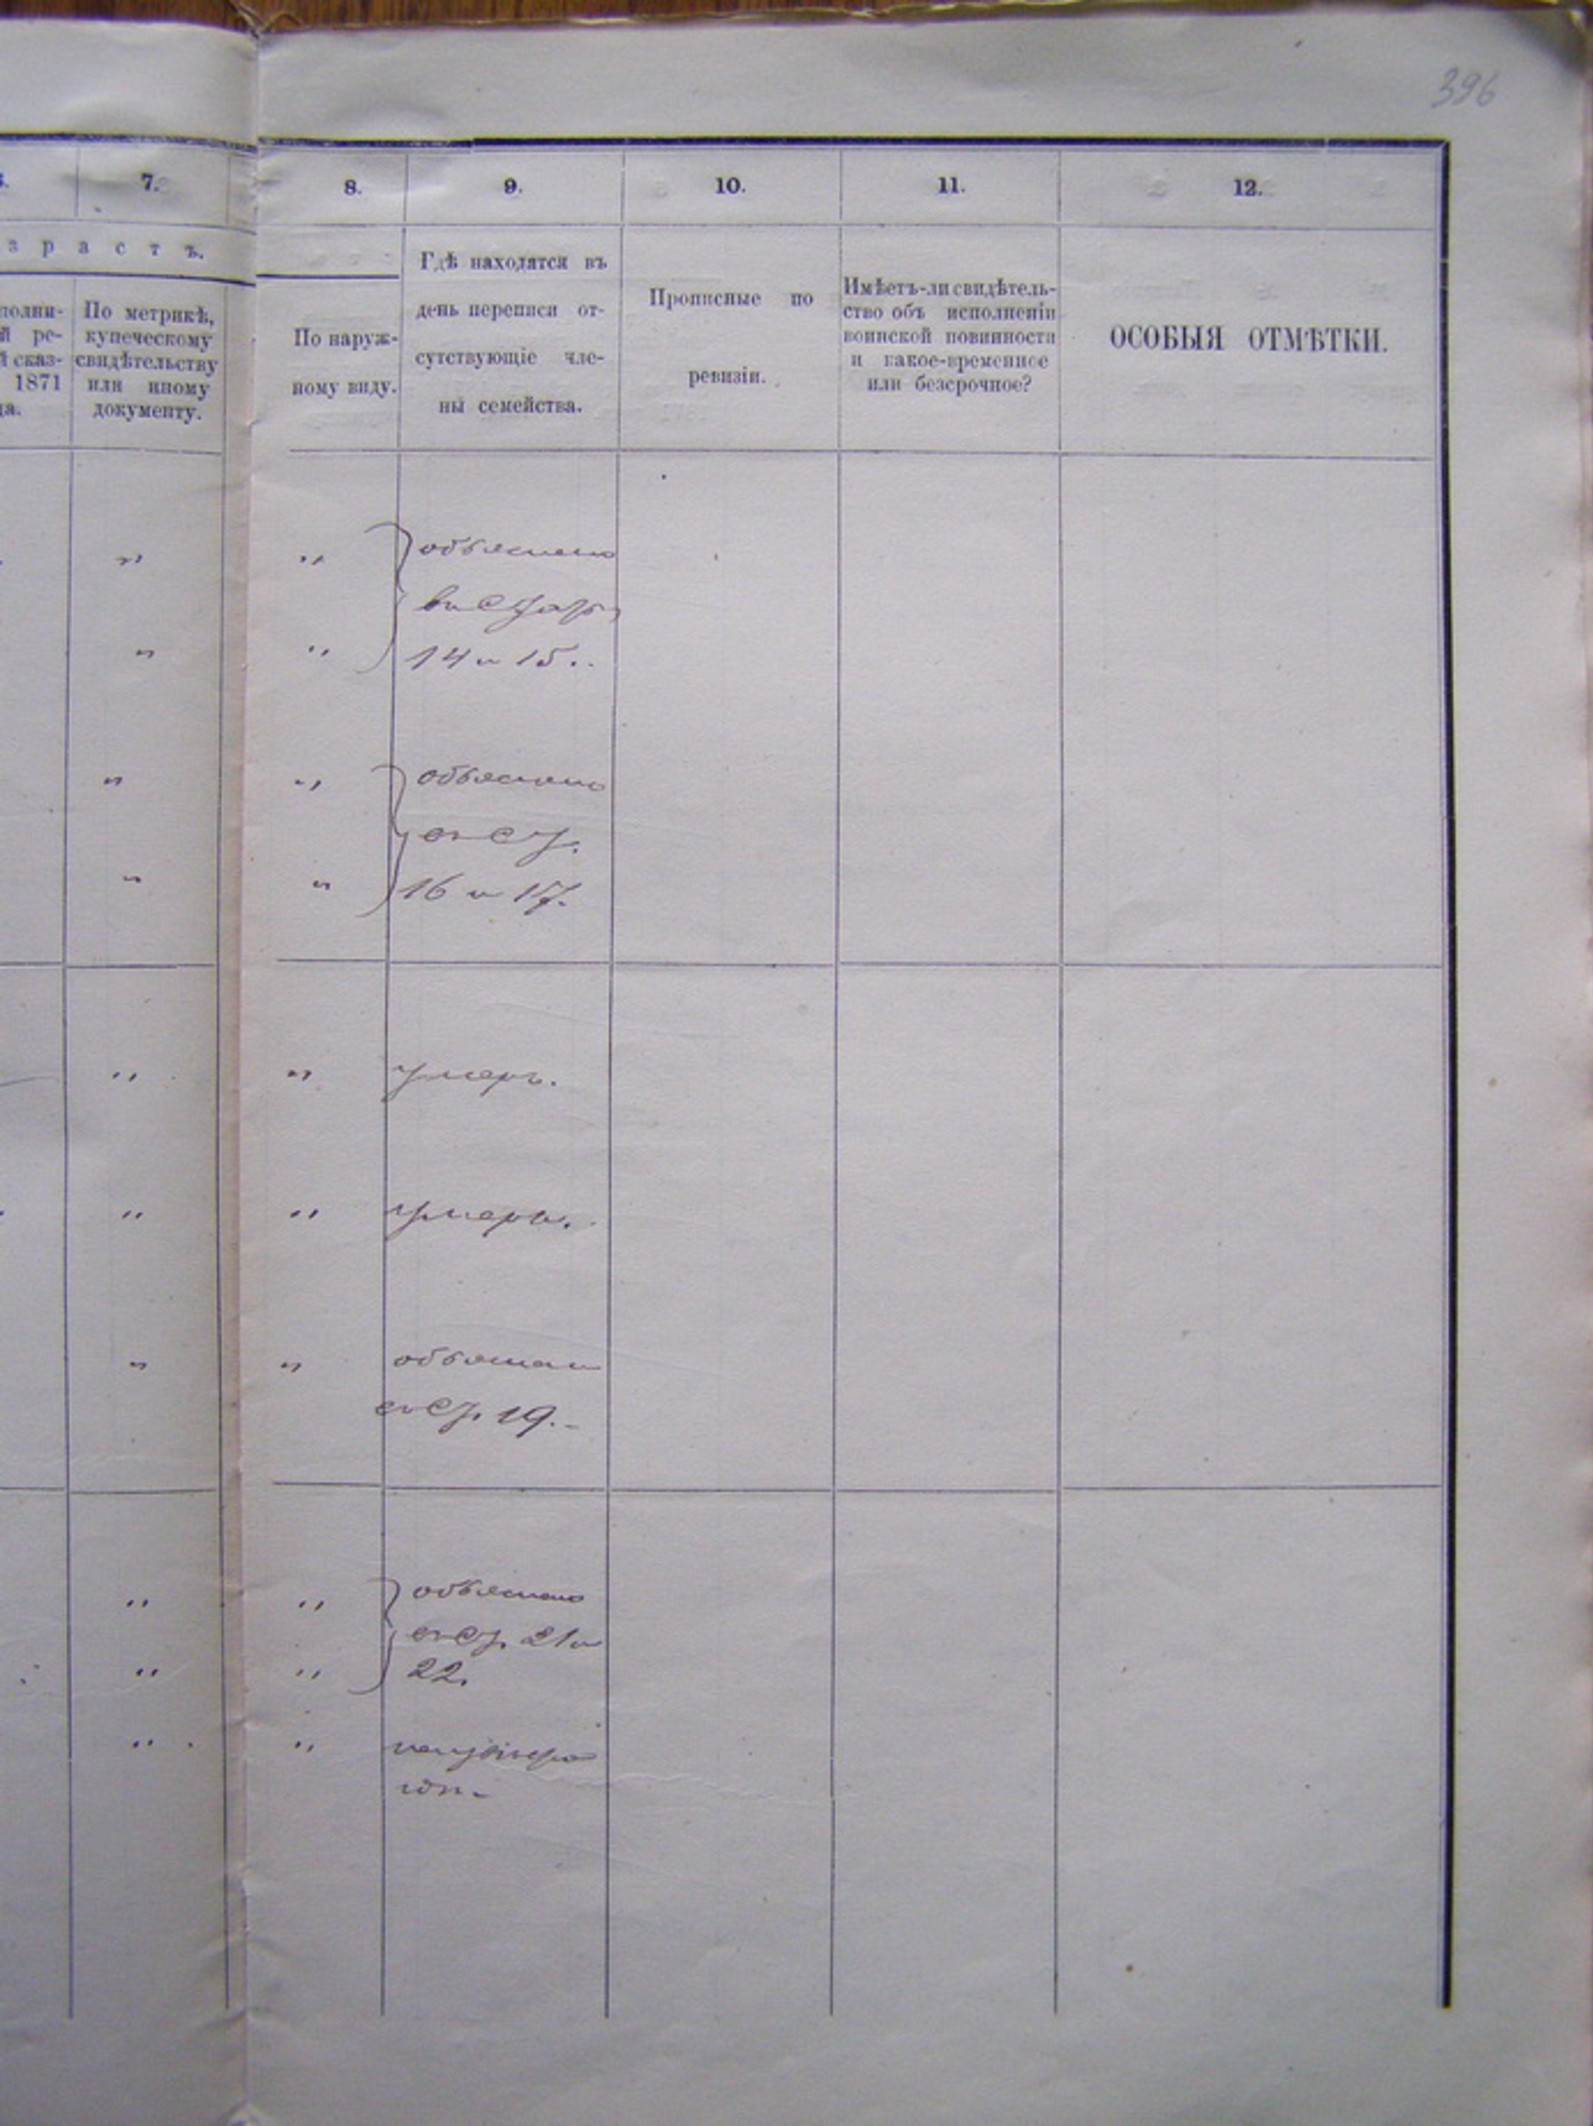 396
7.
8.
9.
10.
11.
12.
з р а с т ъ.
полни-
й ре-
й сказ-
1871
да.
По метрикѣ,
купеческому
свидѣтельству
или иному
документу.
По наруж-
ному виду.
Гдѣ находятся въ
день переписи от-
сутствующіе чле-
ны семейства.
Прописные по
ревизіи.
Имѣетъ-ли свидѣтель-
ство объ исполненіи
воинской повинности
и какое-временное
или безсрочное?
ОСОБЫЯ ОТМѢТКИ.
" " объяснено
въ
" " 14 и 15.
" " объяснено
въ ст.
" " 16 и 17.
" " умеръ.
" " умеръ.
" " объяснен
въ ст. 19.
" " объяснено
въ ст. 21 и
" " 22.
" "